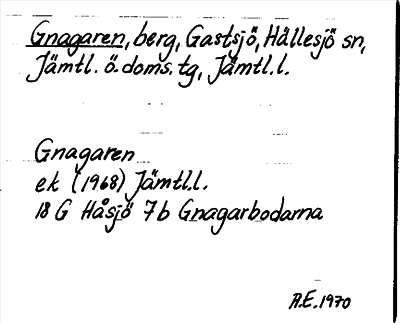 Gnagaren, berg, Gastsjö, Hällesjö sn,
Jämtl. ö. doms. tg, Jämtl.l.
Gnagaren
ek (1968) Jämtl.l.
18 G Håsjö 7b Gnagarbodarna
A.E. 1970